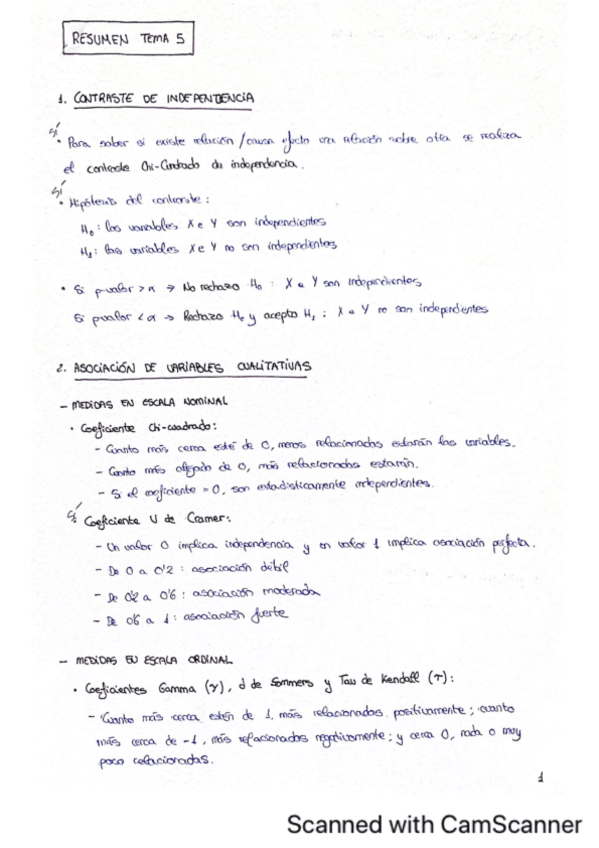 RESUMEN TEMA 5
1. CONTRASTE DE INDEPENDENCIA
Sí
• Para saber si existe relación / causa efecto una relación sobre otra se realiza
el contraste Chi-Cuadrado de independencia.
Sí
• Hipótesis del contraste:
H₀: las variables X e Y son independientes
H₁: las variables X e Y no son independientes
• Si p-valor > α → No rechazo H₀: X e Y son independientes
Si pvalor < α → Rechazo H₀ y acepto H₁: X e Y no son independientes
2. ASOCIACIÓN DE VARIABLES CUALITATIVAS
- MEDIDAS EN ESCALA NOMINAL
• Coeficiente Chi-cuadrado:
- Cuanto más cerca esté de 0, menos relacionadas estarán las variables.
- Cuanto más alejado de 0, más relacionados estarán.
- Si el coeficiente = 0, son estadísticamente independientes.
Sí
• Coeficiente V de Cramer:
- Un valor 0 implica independencia y un valor 1 implica asociación perfecta.
- De 0 a 0'2: asociación débil
- De 0'2 a 0'6: asociación moderada
- De 0'6 a 1: asociación fuerte
- MEDIDAS EN ESCALA ORDINAL
• Coeficientes Gamma (γ), d de Sommers y Tau de Kendall (τ):
- Cuanto más cerca estén de 1, más relacionados positivamente; cuanto
más cerca de -1, más relacionados negativamente; y cerca 0, nada o muy
poco relacionadas.
1
Scanned with CamScanner